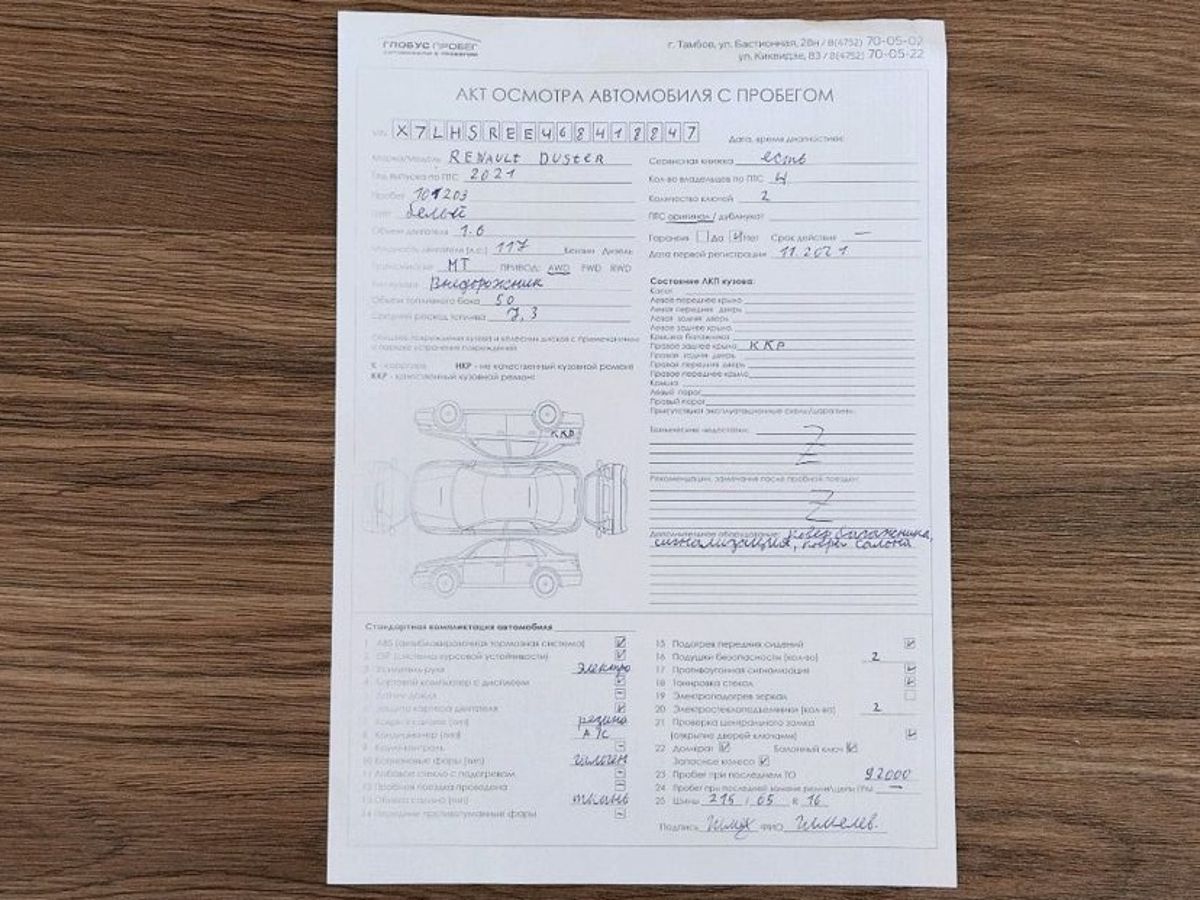 ГЛОБУС ПРОБЕГ
АВТОМОБИЛИ С ПРОБЕГОМ
г. Тамбов, ул. Бастионная, 28н / 8(4752) 70-05-02
ул. Киквидзе, 83 / 8(4752) 70-05-22
АКТ ОСМОТРА АВТОМОБИЛЯ С ПРОБЕГОМ
VIN X7LHSREE468418847
Дата, время диагностики:
Марка/Модель RENAULT DUSTER
Сервисная книжка есть
Год выпуска по ПТС 2021
Кол-во владельцев по ПТС 4
Пробег 101203
Количество ключей 2
Цвет белый
ПТС оригинал / дубликат
Объем двигателя 1.6
Гарантия Да Нет Срок действия —
Мощность двигателя (л.с.) 117 Бензин Дизель
Дата первой регистрации 11.2021
Трансмиссия МТ ПРИВОД: AWD FWD RWD
Тип кузова Внедорожник
Объем топливного бака 50
Средний расход топлива 7,3
Состояние ЛКП кузова:
Капот
Левое переднее крыло
Левая передняя дверь
Левая задняя дверь
Левое заднее крыло
Крышка багажника
Правое заднее крыло ККР
Правая задняя дверь
Правая передняя дверь
Правое переднее крыло
Крыша
Левый порог
Правый порог
Присутствуют эксплуатационные сколы/царапины.
Опишите повреждения кузова и колесных дисков с примечанием
о порядке устранения повреждений
К - царапина НКР - не качественный кузовной ремонт
ККР - качественный кузовной ремонт
ККР
Технические недостатки: Z
Рекомендации, замечания после пробной поездки: Z
Дополнительное оборудование: ковер багажника,
сигнализация, ковры салона
Стандартная комплектация автомобиля
1 ABS (антиблокировочная тормозная система)
2 ESP (система курсовой устойчивости)
3 Усилитель руля электро
4 Бортовой компьютер с дисплеем
5 Датчик дождя
6 Защита картера двигателя
7 Коврики салона (тип) резина
8 Кондиционер (тип) А/С
9 Круиз-контроль
10 Ксеноновые фары (тип) галоген
11 Лобовое стекло с подогревом
12 Пробная поездка проведена
13 Обивка салона (тип) ткань
14 Передние противотуманные фары
15 Подогрев передних сидений
16 Подушки безопасности (кол-во) 2
17 Противоугонная сигнализация
18 Тонировка стекол
19 Электроподогрев зеркал
20 Электростеклоподъемники (кол-во) 2
21 Проверка центрального замка
(открытие дверей ключами)
22 Домкрат Балонный ключ
Запасное колесо
23 Пробег при последнем ТО 92000
24 Пробег при последней замене ремня/цепи ГРМ —
25 Шины 215 / 65 R 16
Подпись ФИО Шмелев.